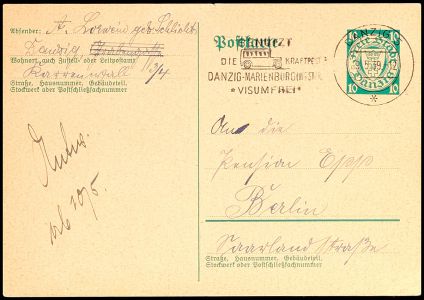 Absender: A. Loewin geb. Schlicht
Danzig
Wohnort, auch Zustell- oder Leitpostamt
Karrenwall 3/4
Straße, Hausnummer, Gebäudeteil,
Stockwerk oder Postschließfachnummer
Postkarte
BENUTZT
DIE KRAFTPOST
DANZIG-MARIENBURG (WESTPR.)
*VISUMFREI*
DANZIG 5
10 10
An die
Pension Epp
Berlin
Saarland Straße
Straße, Hausnummer, Gebäudeteil,
Stockwerk oder Postschließfachnummer
10/5.